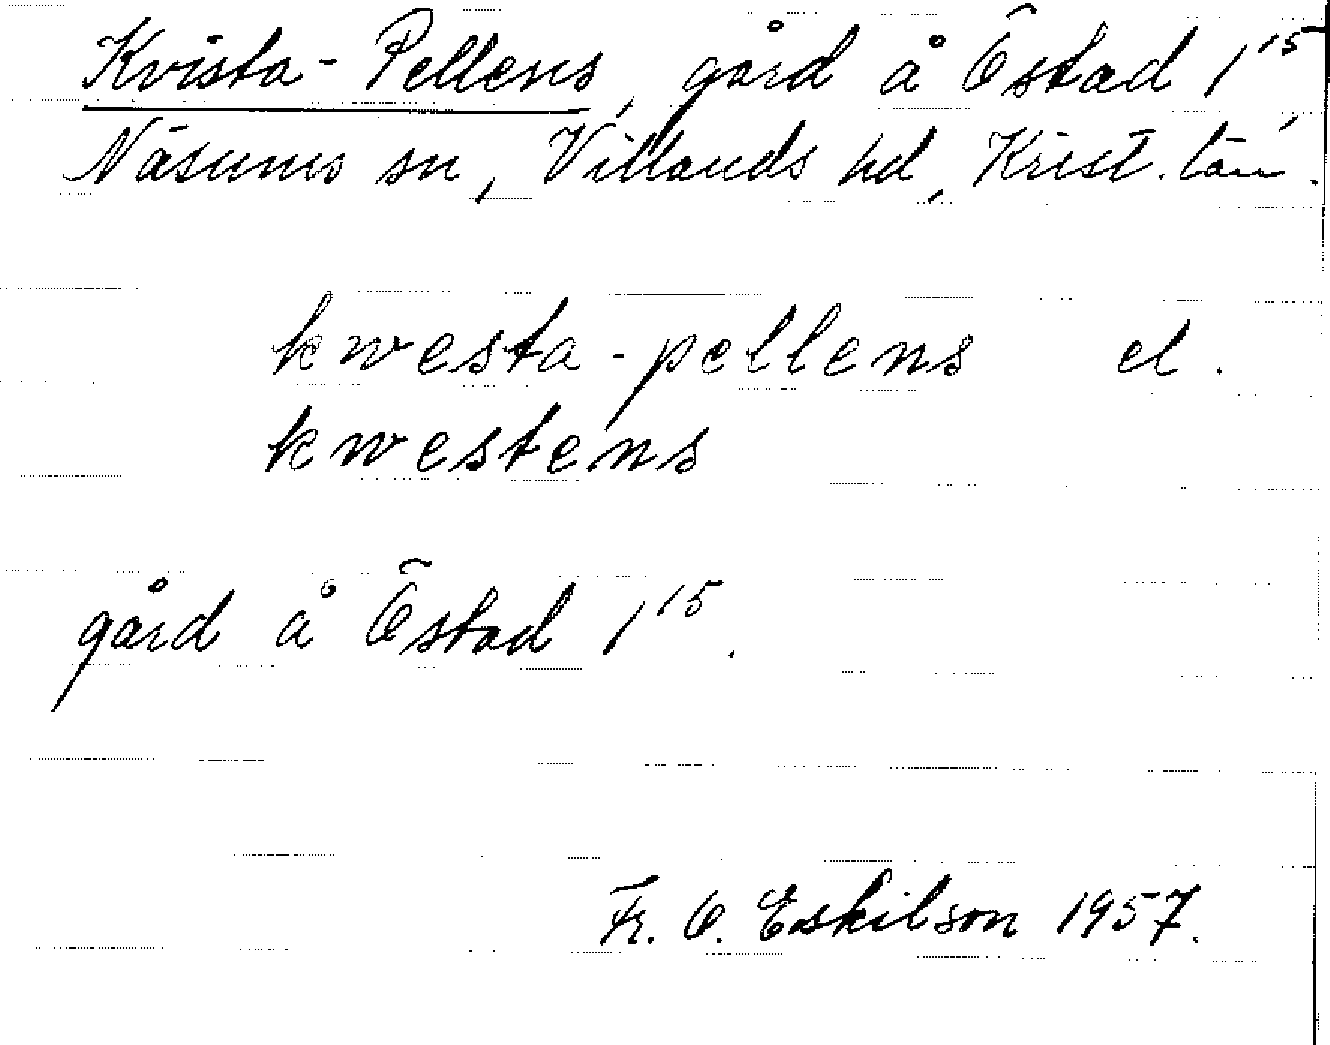 Kvista-Pellens, gård å Östad 1¹⁵,
Näsums sn, Villands hd, Krist. län.
kwesta-pellens el.
kwestens
gård å Östad 1¹⁵.
Fr. O. Eskilson 1957.